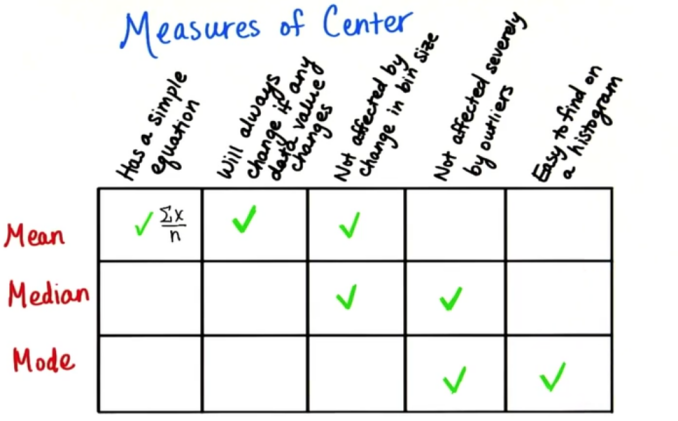 Measures of Center
Has a simple
equation
Will always
change if any
data value
changes
Not affected by
change in bin size
Not affected severely
by outliers
Easy to find on
a histogram
Mean
✓ Σx
n
✓
✓
Median
✓
✓
Mode
✓
✓